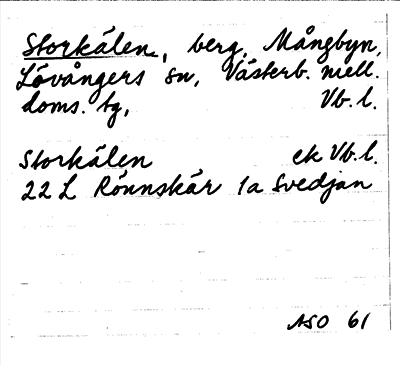 Storkålen, berg, Mångbyn,
Lövångers sn, Västerb. mell.
doms. tg, Vb. l.
Storkålen ek Vb. l.
22 L Rönnskär 1a Svedjan
ASO 61